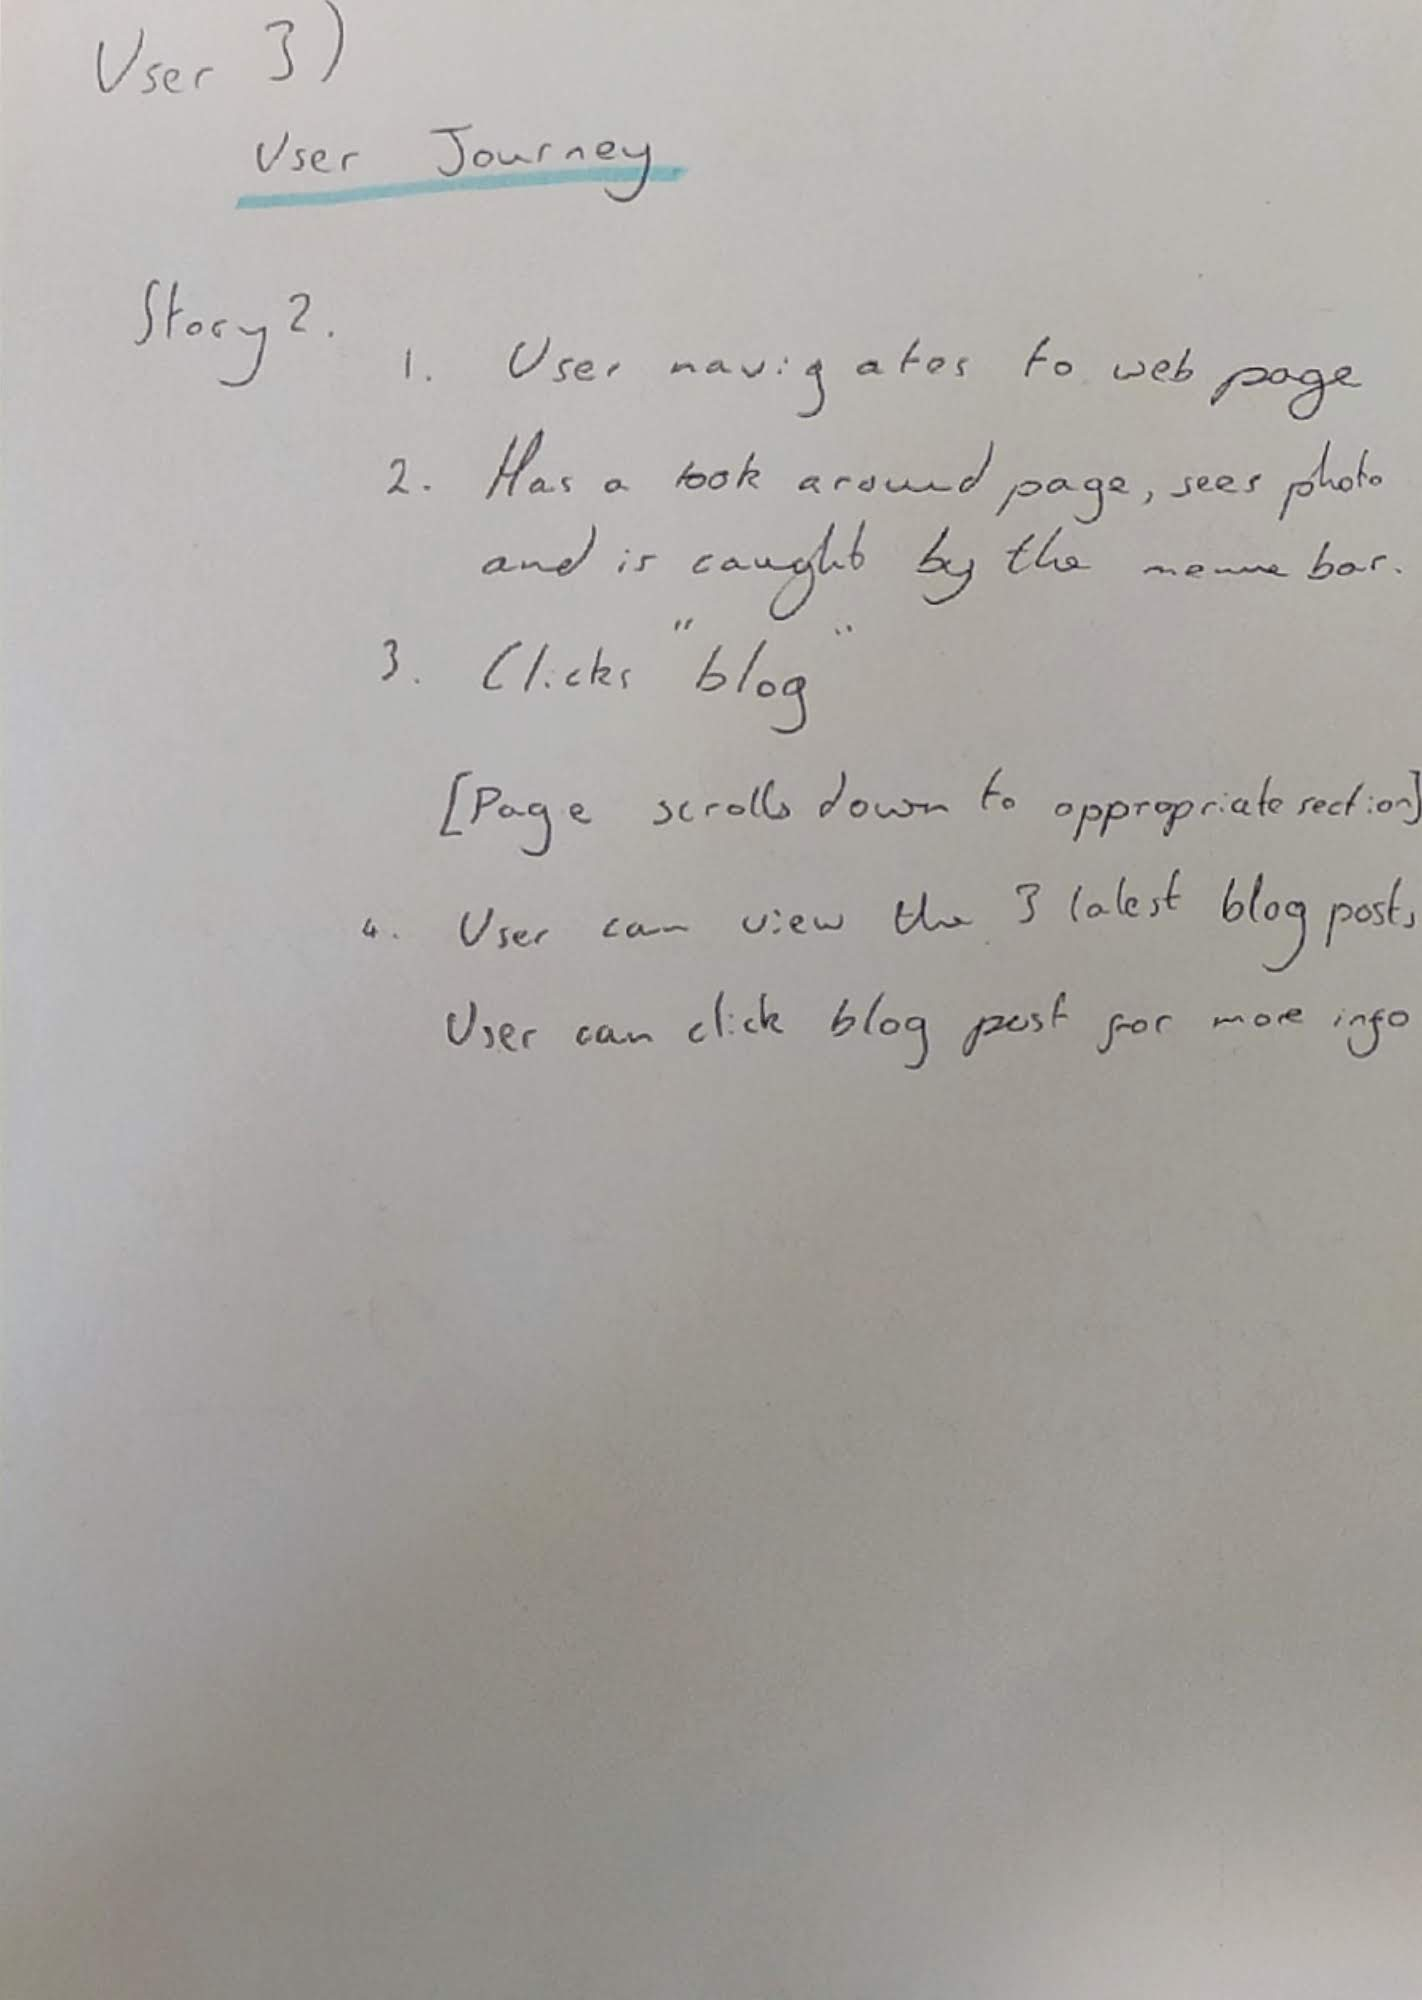 User 3)
User Journey
Story 2.
1. User navigates to web page
2. Has a look around page, sees photo
and is caught by the menue bar.
3. Clicks "blog"
[Page scrolls down to appropriate section]
4. User can view the 3 latest blog posts
User can click blog post for more info